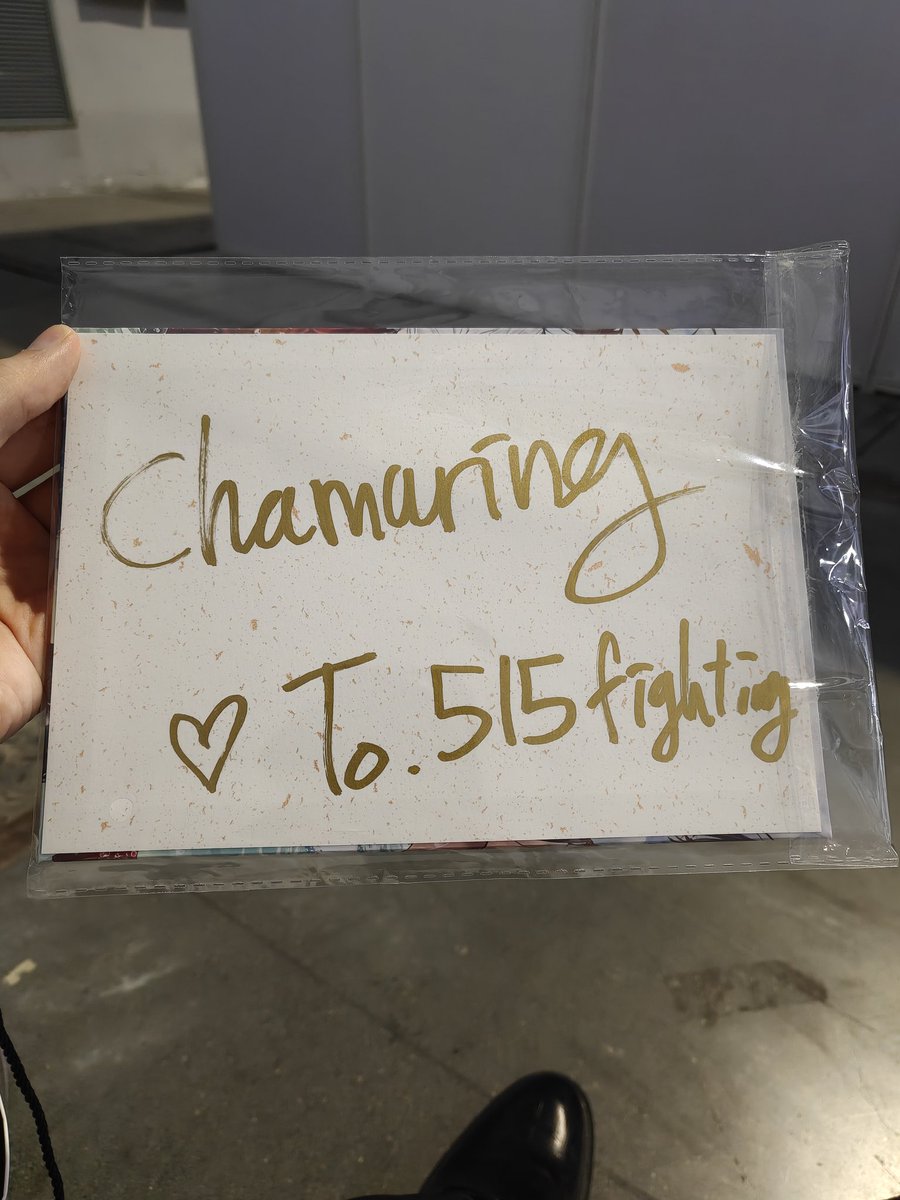 Chamaring
♡ To. 515 fighting